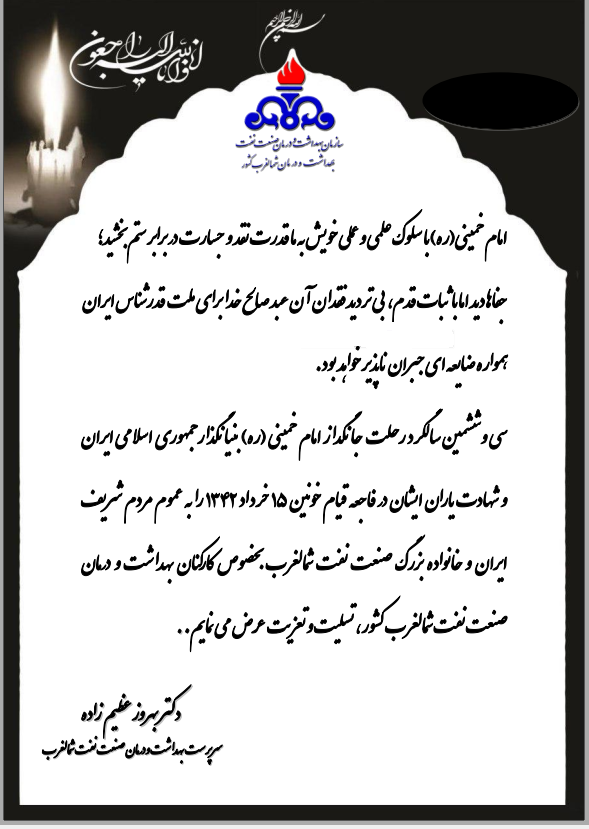 بسم الله الرحمن الرحیم
انا لله و انا الیه راجعون
سازمان بهداشت و درمان صنعت نفت
بهداشت و درمان شمالغرب کشور
امام خمینی (ره) با سلوک علمی و عملی خویش به ما قدرت نقد و جسارت در برابر ستم بخشید؛
جفاها دید اما با ثبات قدم، بی تردید فقدان آن عبد صالح خدا برای ملت قدرشناس ایران
همواره ضایعه ای جبران ناپذیر خواهد بود.
سی و ششمین سالگرد رحلت جانگداز امام خمینی (ره) بنیانگذار جمهوری اسلامی ایران
و شهادت یاران ایشان در فاجعه قیام خونین ۱۵ خرداد ۱۳۴۲ را به عموم مردم شریف
ایران و خانواده بزرگ صنعت نفت شمالغرب بخصوص کارکنان بهداشت و درمان
صنعت نفت شمالغرب کشور، تسلیت و تعزیت عرض می نمایم..
دکتر بهروز عظیم زاده
سرپرست بهداشت و درمان صنعت نفت شمالغرب